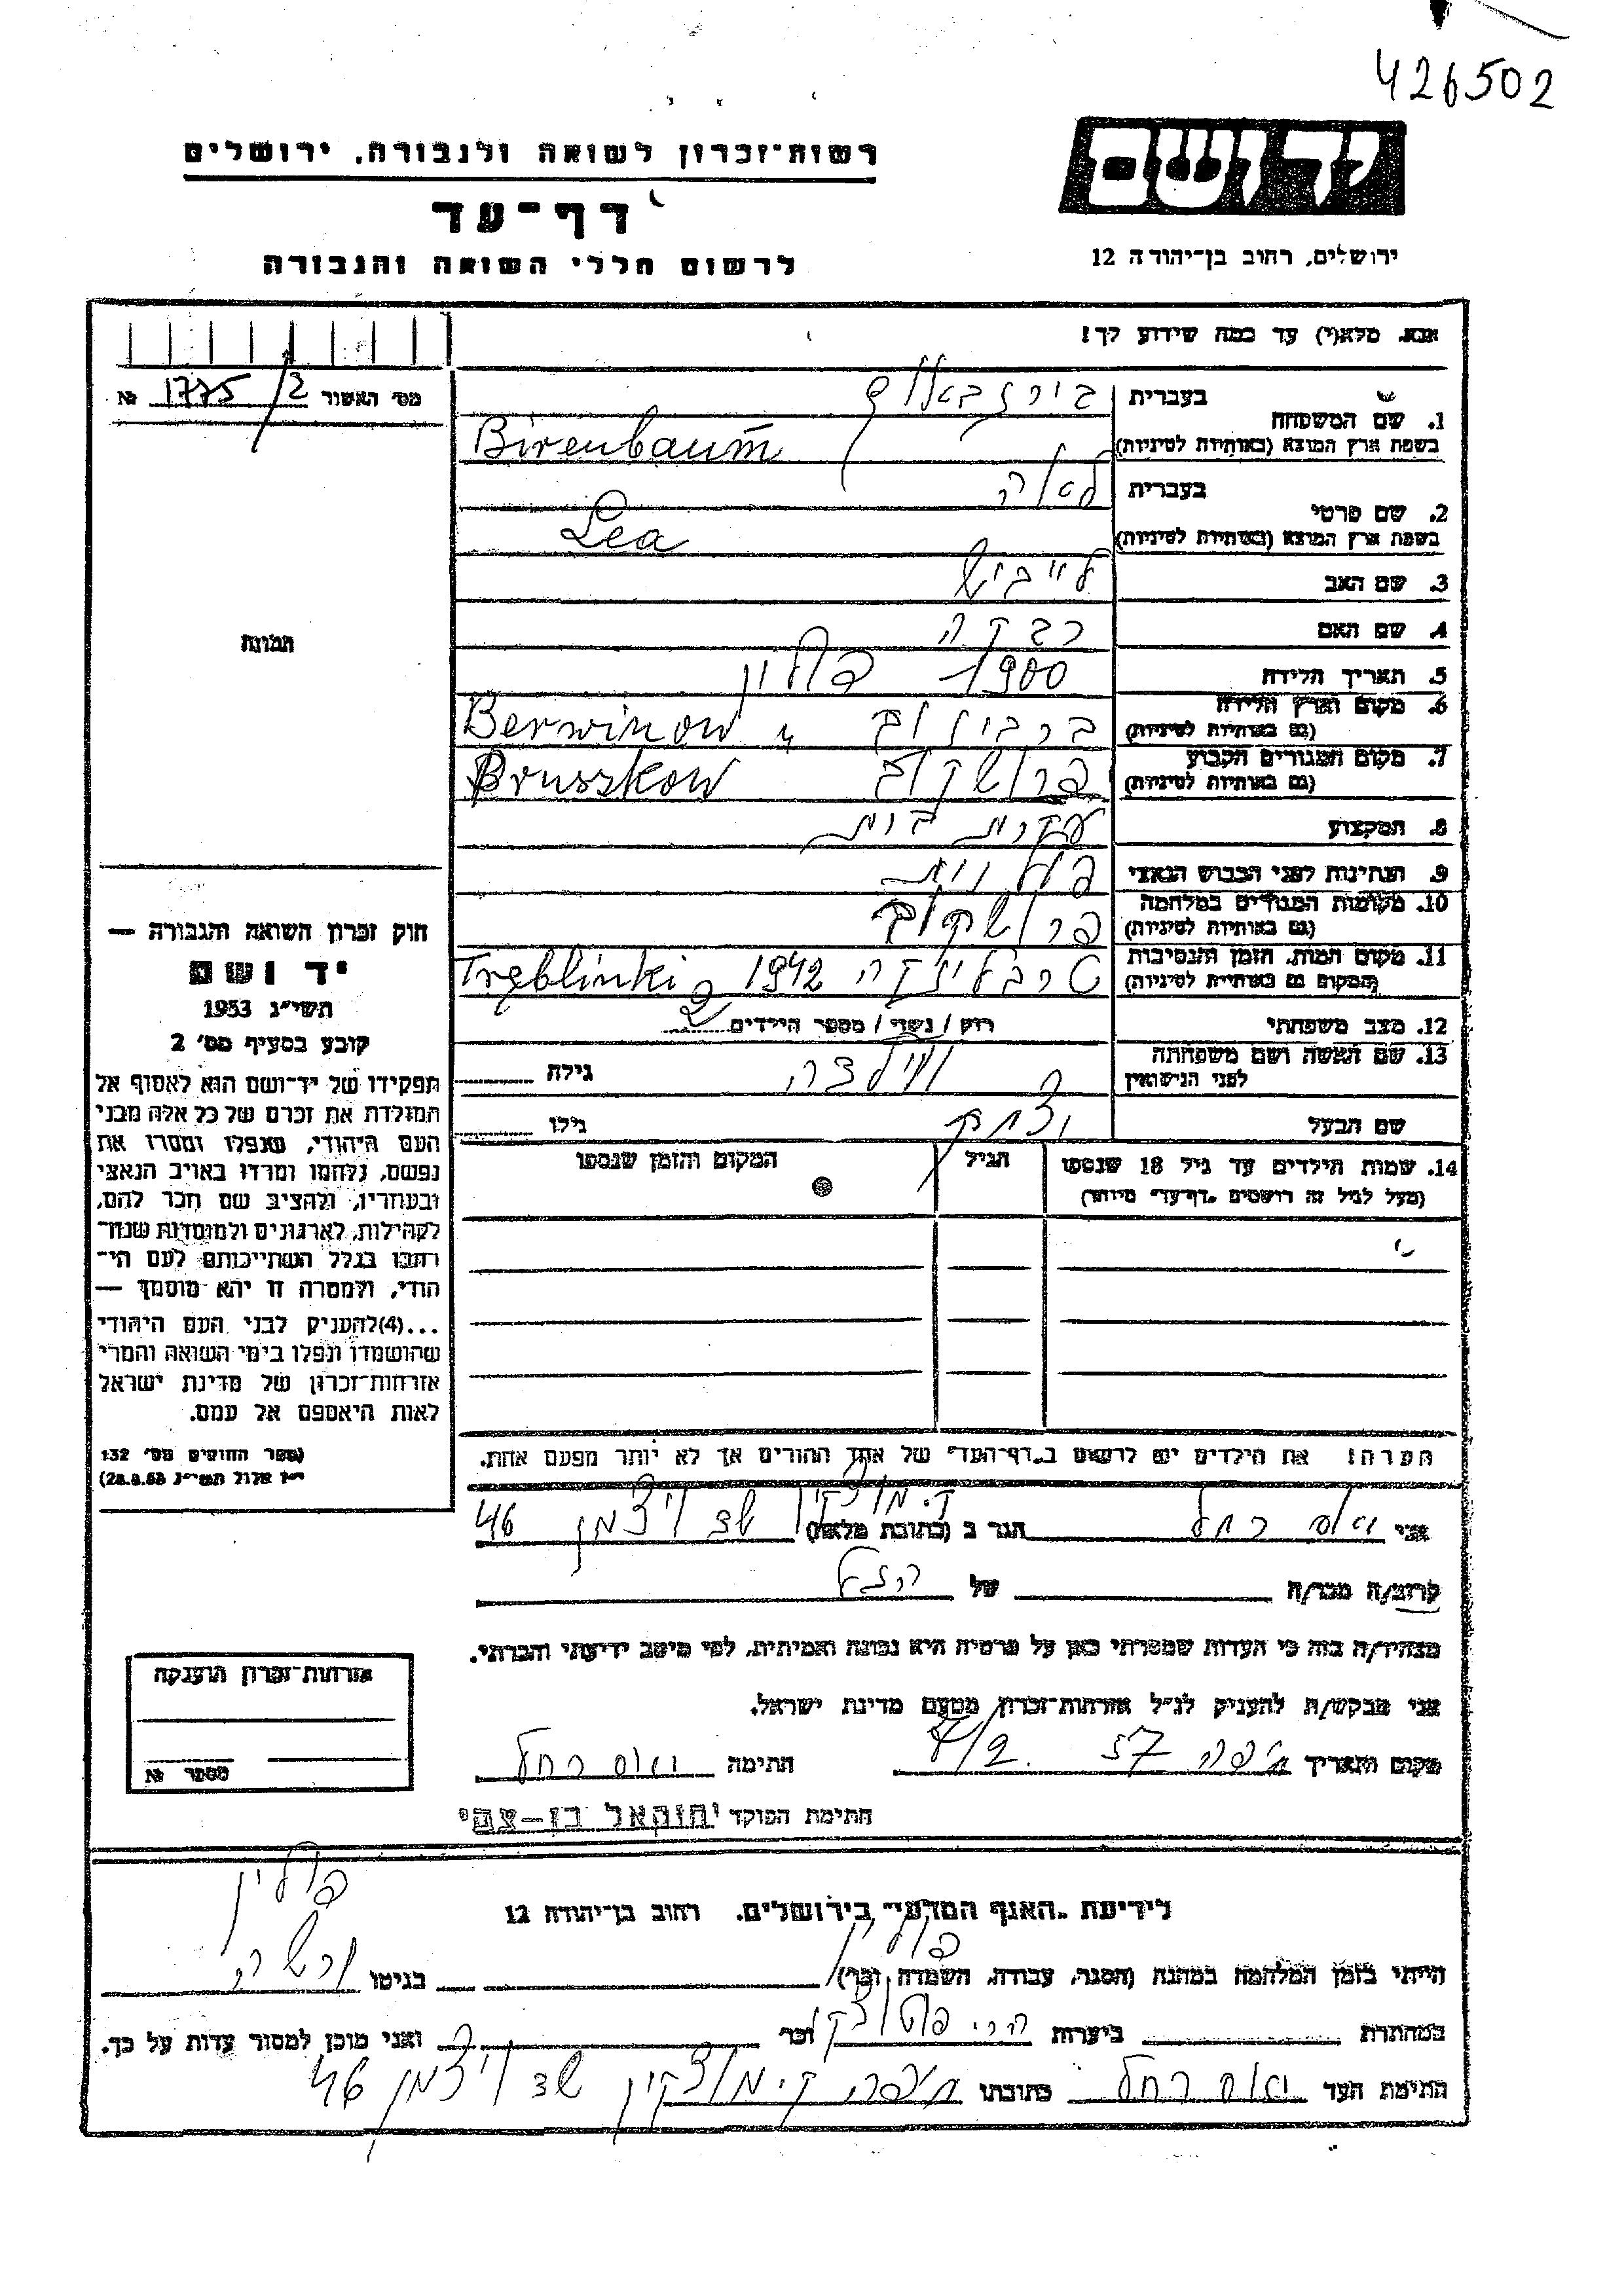 426502
יד ושם
ירושלים, רחוב בן־יהודה 12
רשות־זכרון לשואה ולגבורה, ירושלים
דף־עד
לרשום חללי השואה והגבורה
אנא, מלא(י) עד כמה שידוע לך!
מס׳ האשור 1775/2 №
1. שם המשפחה
בעברית בירנבאום
בשפת ארץ המוצא (באותיות לטיניות) Birenbaum
2. שם פרטי
בעברית לאה
בשפת ארץ המוצא (באותיות לטיניות) Lea
3. שם האב לייביש
4. שם האם רבקה
5. תאריך הלידה 1900 פולין
6. מקום וארץ הלידה
(גם באותיות לטיניות) ברבינוב Berwinow
7. מקום המגורים הקבוע
(גם באותיות לטיניות) פרושקוב Pruszkow
8. המקצוע עקרת בית
9. הנתינות לפני הכבוש הנאצי פולנית
10. מקומות המגורים במלחמה
(גם באותיות לטיניות) פרושקוב
11. מקום המות, הזמן והנסיבות
(המקום גם באותיות לטיניות) טרבלינקה 1942 Tręblinki
12. מצב משפחתי רוק / נשוי / מספר הילדים 2
13. שם האשה ושם משפחתה
לפני הנישואין גילה
שם הבעל יצחק גילו
14. שמות הילדים עד גיל 18 שנספו
(מעל לגיל זה רושמים „דף־עד״ מיוחד)
הגיל
המקום והזמן שנספו
הערה: את הילדים יש לרשום ב„דף־העד״ של אחד ההורים אך לא יותר מפעם אחת.
תמונה
חוק זכרון השואה והגבורה —
יד ושם
תשי״ג 1953
קובע בסעיף מס׳ 2
תפקידו של יד־ושם הוא לאסוף אל
המולדת את זכרם של כל אלה מבני
העם היהודי, שנפלו ומסרו את
נפשם, נלחמו ומרדו באויב הנאצי
ובעוזריו, ולהציב שם וזכר להם,
לקהילות, לארגונים ולמוסדות שנח־
רבו בגלל השתייכותם לעם הי־
הודי, ולמטרה זו יהא מוסמך —
...(4)להעניק לבני העם היהודי
שהושמדו ונפלו בימי השואה והמרי
אזרחות־זכרון של מדינת ישראל
לאות היאספם אל עמם.
(ספר החוקים מס׳ 132
י״ז אלול תשי״ג 28.8.53)
אני רחל הגר ב (כתובת מלאה) ק. מוצקין שד ויצמן 46
קרוב/ה מכר/ה של הנ״ל
מצהיר/ה בזה כי העדות שמסרתי כאן על פרטיה היא נכונה ואמיתית, לפי מיטב ידיעתי והכרתי.
אני מבקש/ת להעניק לנ״ל אזרחות־זכרון מטעם מדינת ישראל.
מקום ותאריך חיפה 57 חתימה רחל
חתימת הפוקד יחזקאל בן־צבי
אזרחות־זכרון הוענקה
מספר №
לידיעת „האגף המדעי״ בירושלים, רחוב בן־יהודה 12
הייתי בזמן המלחמה במחנה (הסגר, עבודה, השמדה וכו׳) פולין בגיטו ורשה פולין
במחתרת ביערות וכו׳ ואני מוכן למסור עדות על כך.
חתימת העד רחל כתובתו חיפה ק. מוצקין שד ויצמן 46